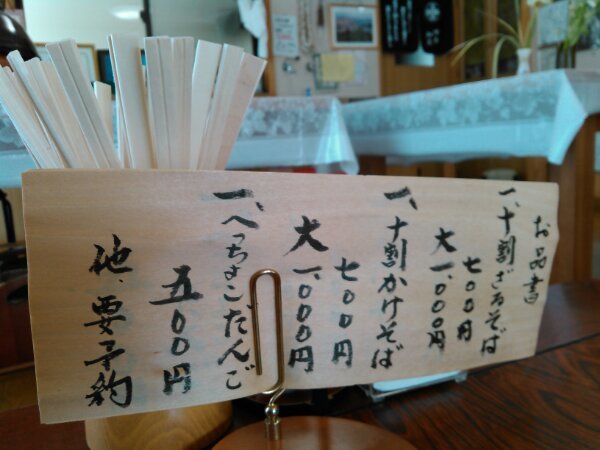 お品書
一、十割ざるそば
七〇〇円
大 一、〇〇〇円
一、十割かけそば
七〇〇円
大 一、〇〇〇円
一、へっちょこだんご
五〇〇円
他、要予約